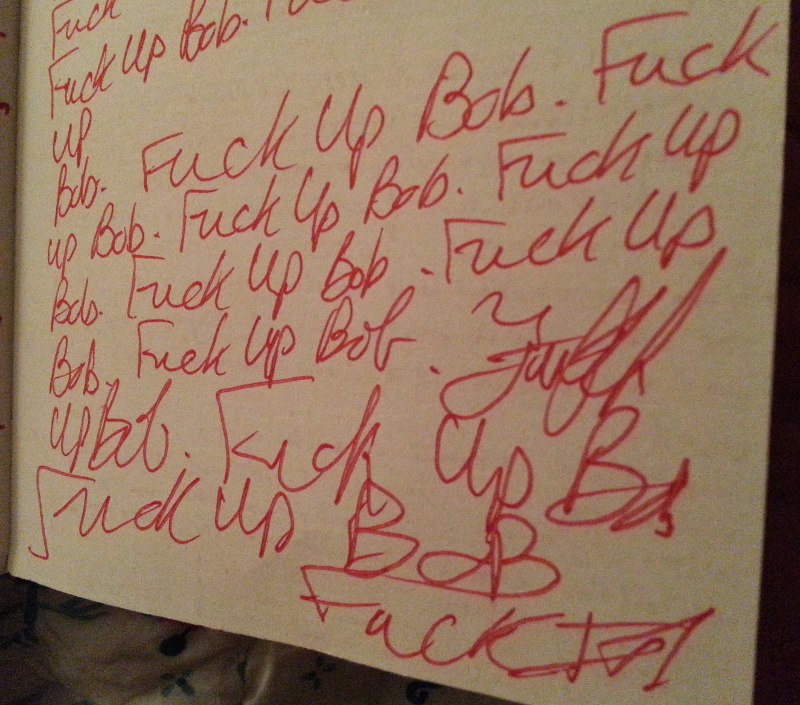 Fuck
Fuck Up Bob.
up
Bob. Fuck Up Bob. Fuck
up Bob. Fuck Up Bob. Fuck Up
Bob. Fuck Up Bob. Fuck Up
Bob. Fuck Up Bob.
Up Bob. Fuck Up Bob
Fuck Up BoB
Fuck